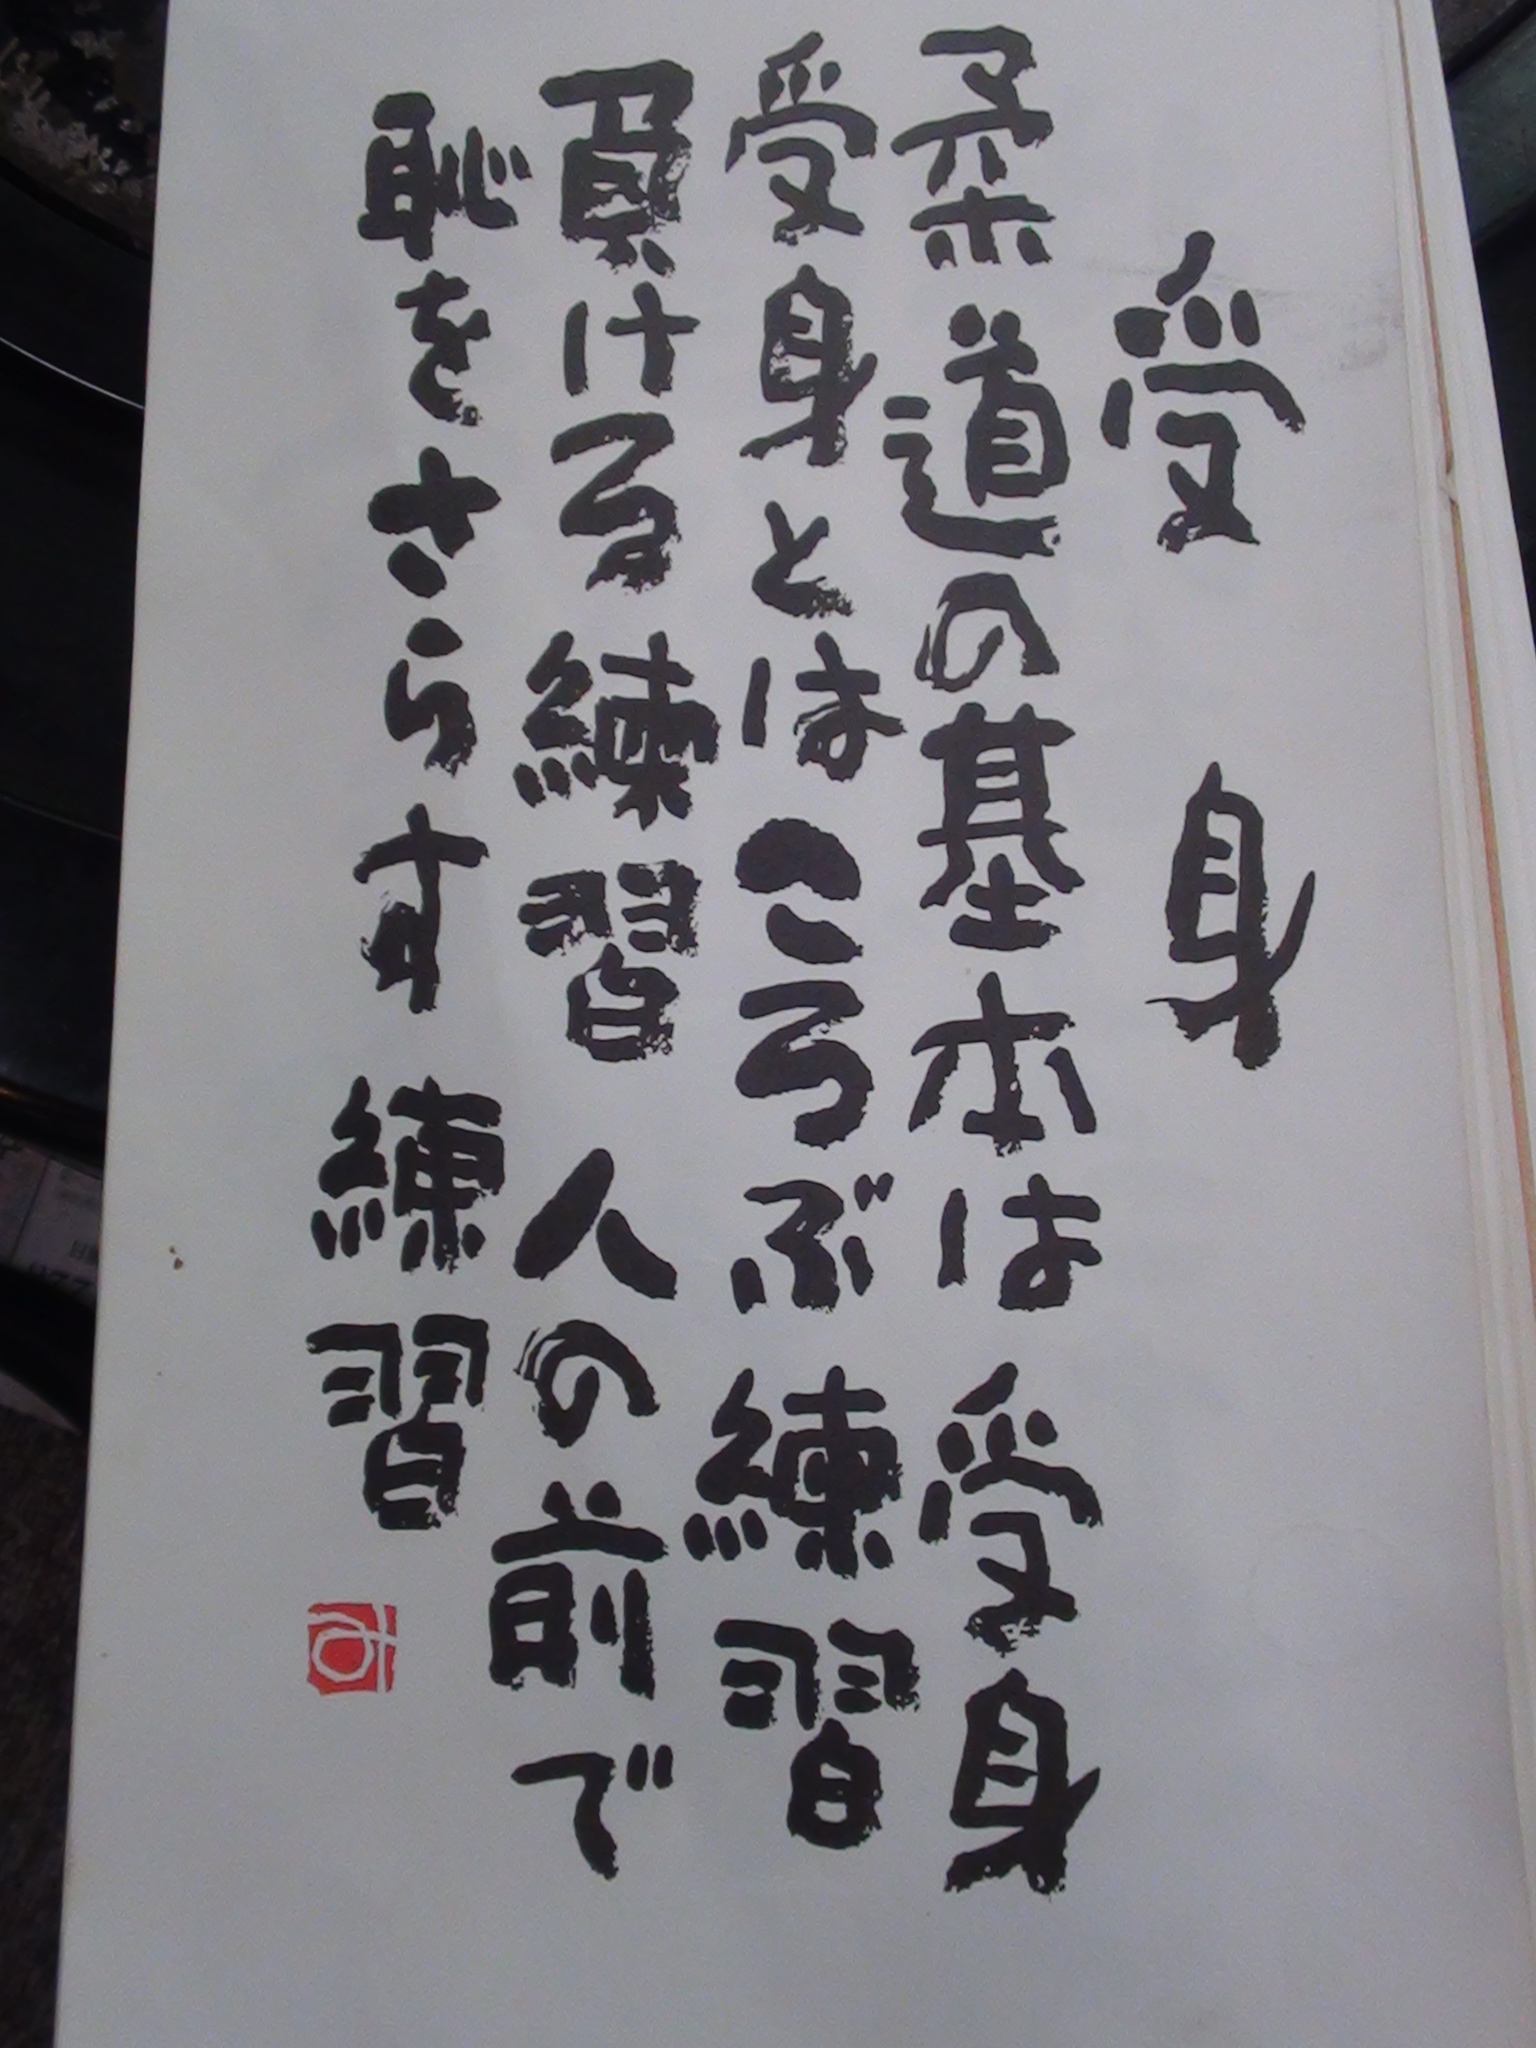 受身
柔道の基本は受身
受身とはころぶ練習
負ける練習 人の前で
恥をさらす練習
み